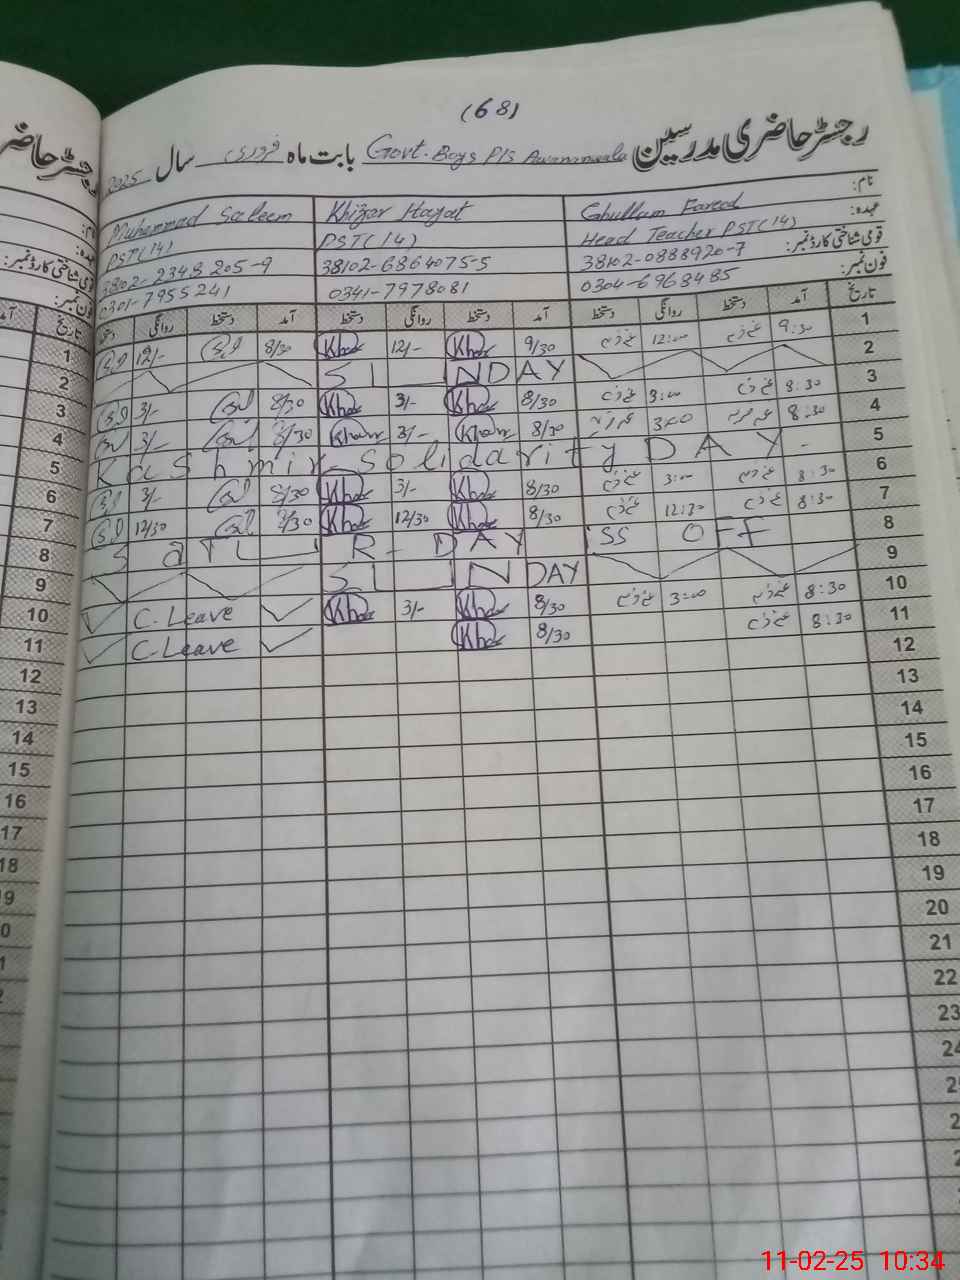 (68)
رجسٹر حاضری مدرسین Govt. Boys P/S Awananwala بابت ماہ فروری سال 2025
نام: Ghullam Fareed Khizar Hayat Muhammad Saleem
عہدہ: Head Teacher PST(14) PST(14) PST(14)
قومی شناختی کارڈ نمبر: 38102-0888920-7 38102-6864075-5 3802-2348205-9
فون نمبر: 0304-6968485 0341-7978081 0301-7955241
تاریخ آمد دستخط روانگی دستخط آمد دستخط روانگی دستخط آمد دستخط روانگی
1 9:30 12:00 9/30 12/- 8/30 12/-
2 SUNDAY
3 8:30 3:00 8/30 3/- 8/30 3/-
4 8:30 3:00 8/30 3/- 8/30 3/-
5 Kashmir solidarity DAY -
6 8:30 3:00 8/30 3/- 8/30 3/-
7 8:30 12:30 8/30 12/30 8/30 12/30
8 SaTUR-DAY ISS OFF
9 SUNDAY
10 8:30 3:00 8/30 3/- C. Leave
11 8:30 8/30 C-Leave
12
13
14
15
16
17
18
19
20
21
22
23
24
11-02-25 10:34